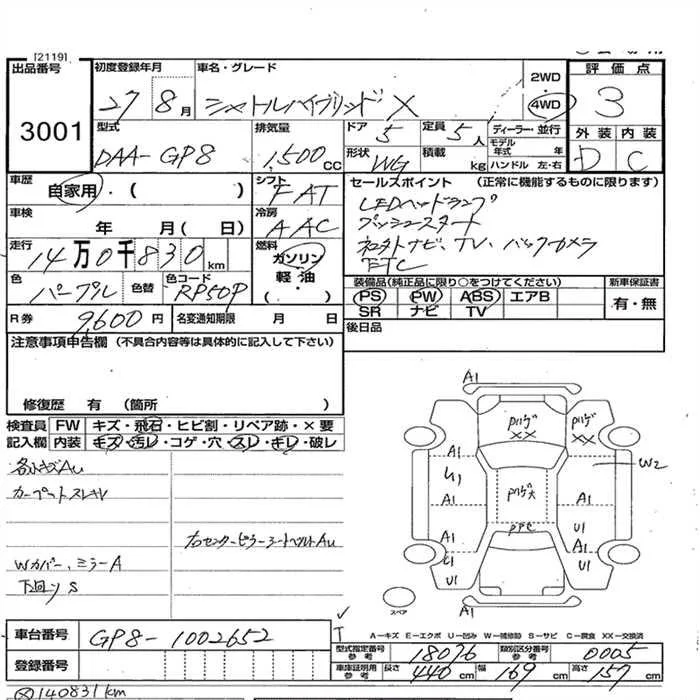 [2119]
出品番号
3001
初度登録年月
27 8月
車名・グレード
シャトルハイブリッド X
2WD
4WD
評価点
3
外装 内装
D C
型式
DAA-GP8
排気量
1,500 CC
ドア 5
定員 5人
形状 WG
積載 kg
ディーラー・並行
モデル年式 年
ハンドル 左・右
車歴
自家用・( )
シフト
FAT
車検
年 月( 日)
冷房
AAC
走行
14万0千830km
燃料
ガソリン
軽油
・( )
色
パープル
色替
色コード
RP50P
R券
9,600円
名変通知期限 月 日
セールスポイント (正常に機能するものに限ります)
LEDヘッドランプ
プッシュスタート
社外ナビ、TV、バックカメラ
ETC
装備品(純正品に限り○をつけてください)
PS PW ABS エアB
SR ナビ TV
新車保証書
有・無
後日品
注意事項申告欄 (不具合内容等は具体的に記入して下さい)
修復歴 有 (箇所 )
検査員記入欄
FW キズ・飛石・ヒビ割・リペア跡・×要
内装 キズ・汚レ・コゲ・穴・スレ・キレ・破レ
各内キズAu
カーペットスレキレ
右センターピラーシートベルトAu
Wカバー、ミラーA
下回りS
A1
パハゲ
××
パハゲ
××
A1
A1
W2
U1
パハゲ大
A1
A1
U1
A1
A1
C1
U1
U1
A1
スペア
A-キズ E-エクボ U-凹み W-補修跡 S-サビ C-腐食 XX-交換済
車台番号
GP8-1002652
登録番号
型式指定番号 参考
18076
類別区分番号 参考
0005
車庫証明用 参考
長さ 440cm
幅 169cm
高さ 157cm
140831km